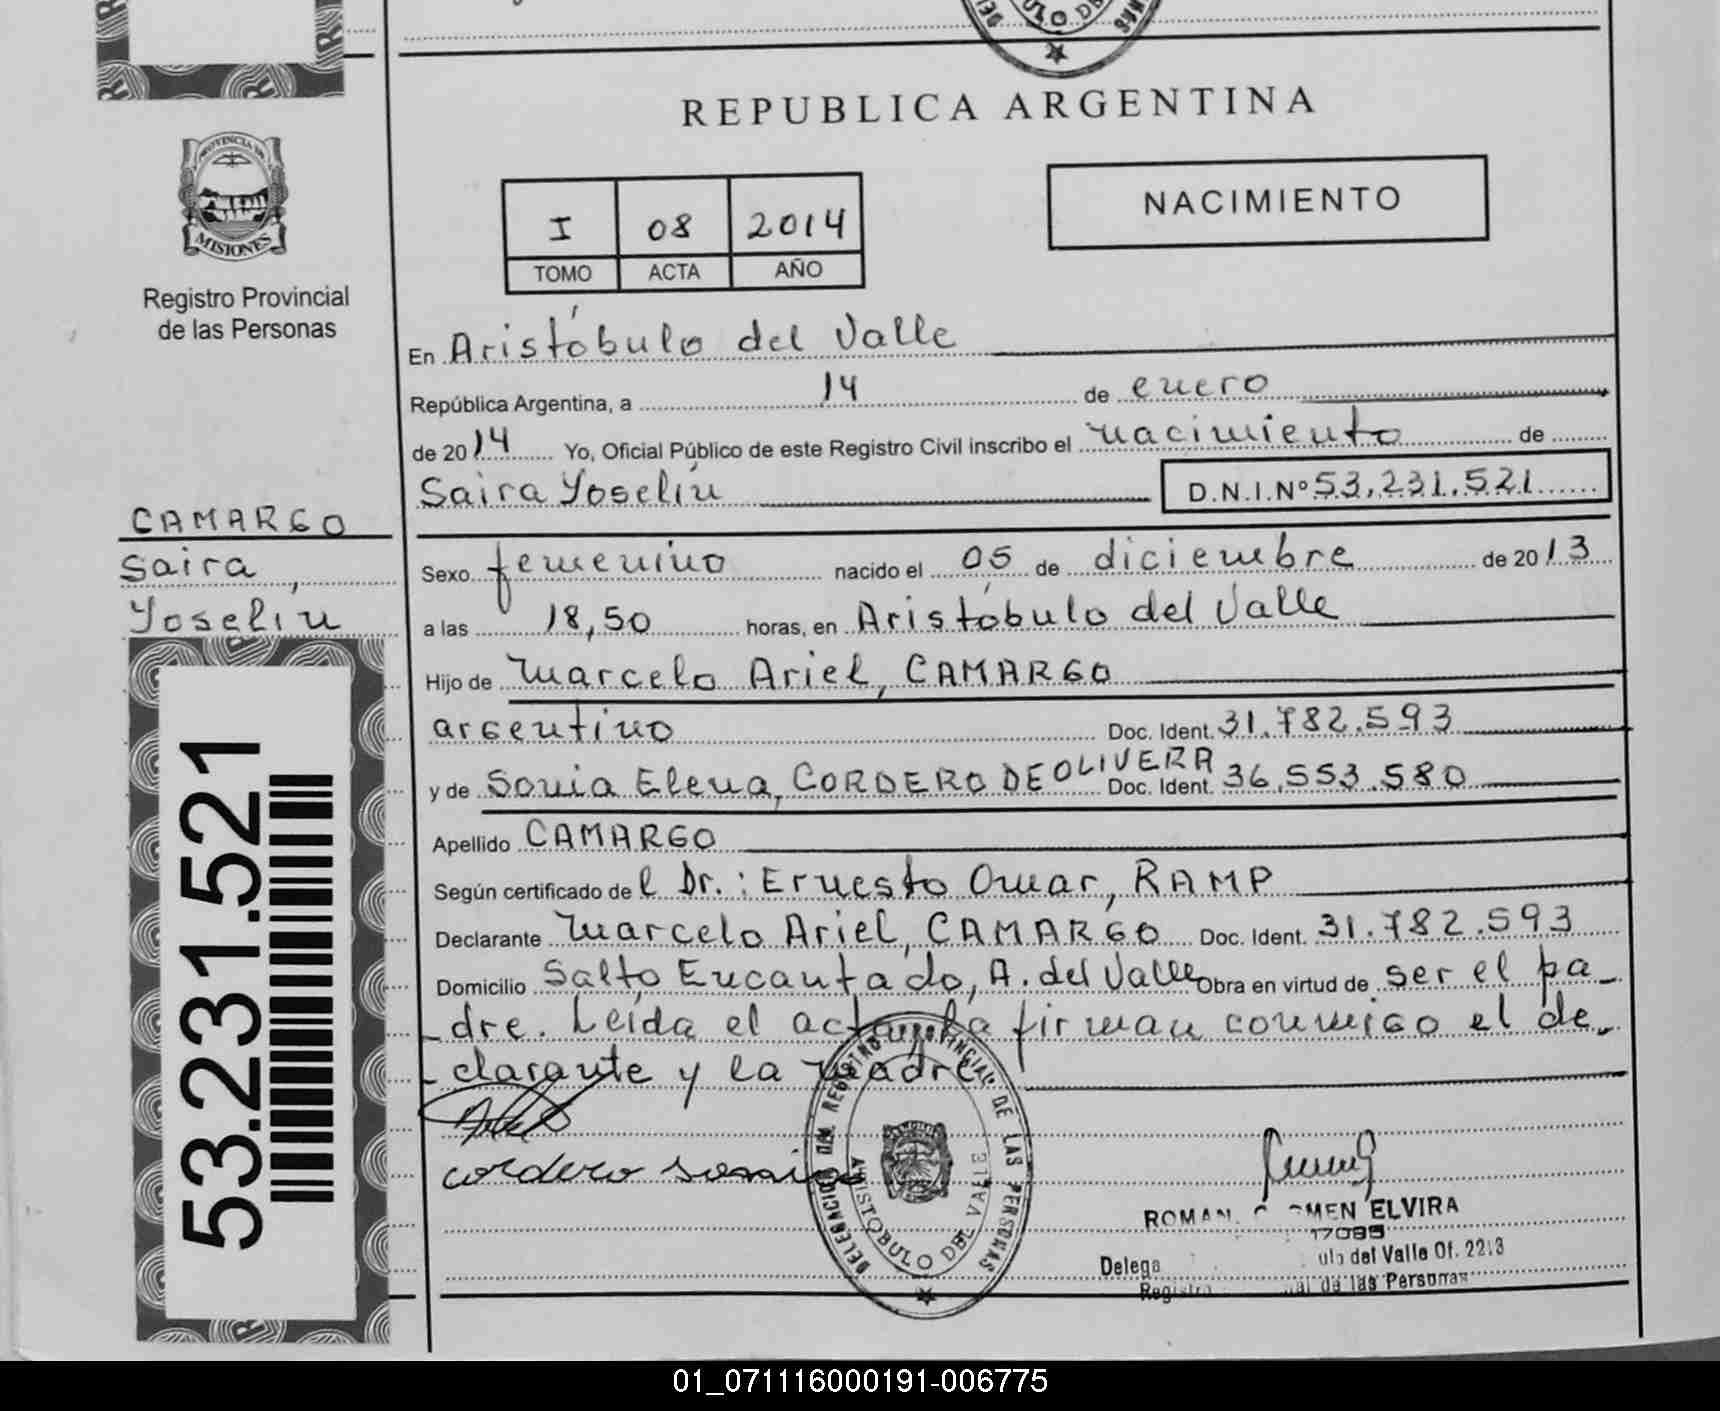 REPUBLICA ARGENTINA
PROVINCIA DE
MISIONES
Registro Provincial
de las Personas
NACIMIENTO
I 08 2014
TOMO ACTA AÑO
En Aristóbulo del Valle
República Argentina, a 14 de enero
de 2014 Yo, Oficial Público de este Registro Civil inscribo el nacimiento de
Saira Yoselín D.N.I.Nº 53.231.521
CAMARGO
Saira
Yoselín
53.231.521
Sexo femenino nacido el 05 de diciembre de 2013
a las 18,50 horas, en Aristóbulo del Valle
Hijo de Marcelo Ariel, CAMARGO
argentino Doc. Ident. 31.782.593
y de Sonia Elena, CORDERO DE OLIVERA Doc. Ident. 36.553.580
Apellido CAMARGO
Según certificado del Dr.: Ernesto Omar, RAMP
Declarante Marcelo Ariel, CAMARGO Doc. Ident. 31.782.593
Domicilio Salto Encantado, A. del Valle Obra en virtud de ser el pa_
_dre. Leída el acta, la firman conmigo el de_
_clarante y la madre
cordero sonia
DELEGACION DEL REGISTRO PROVINCIAL DE LAS PERSONAS
ARISTOBULO DEL VALLE
ROMAN ELVIRA
17085
del Valle Of. 2213
de las Personas
01_071116000191-006775